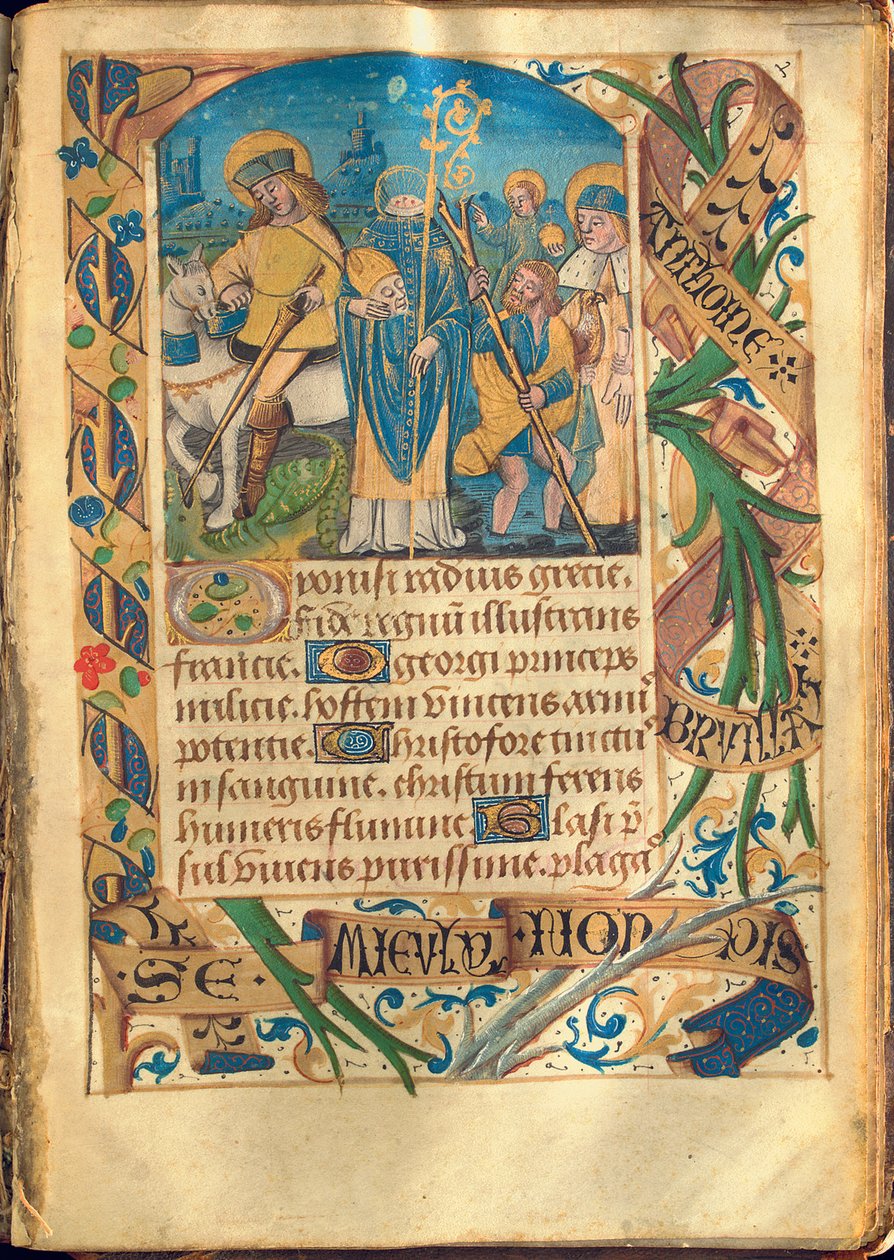 ANTHOINE
Dyonisi radius grecie.
fide regnū illustrans
francie. O georgi princeps
milicie. hostem vincens armiꝰ
potentie. Christofore tinctuꝰ
in sanguine. christum ferens
humeris flumine. Blasi p̄
sul vivens purissime. plagaꝰ
BRVILLA
SE · MIEVLX · NON PIS